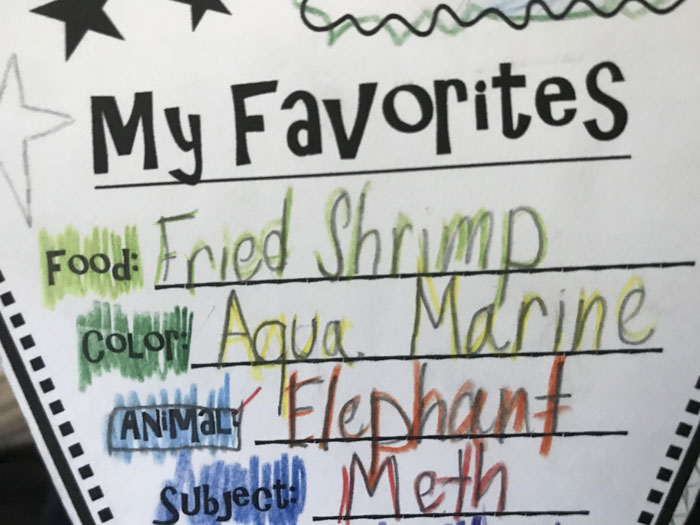 My Favorites
Food: Fried Shrimp
Color: Aqua Marine
Animal: Elephant
Subject: Meth